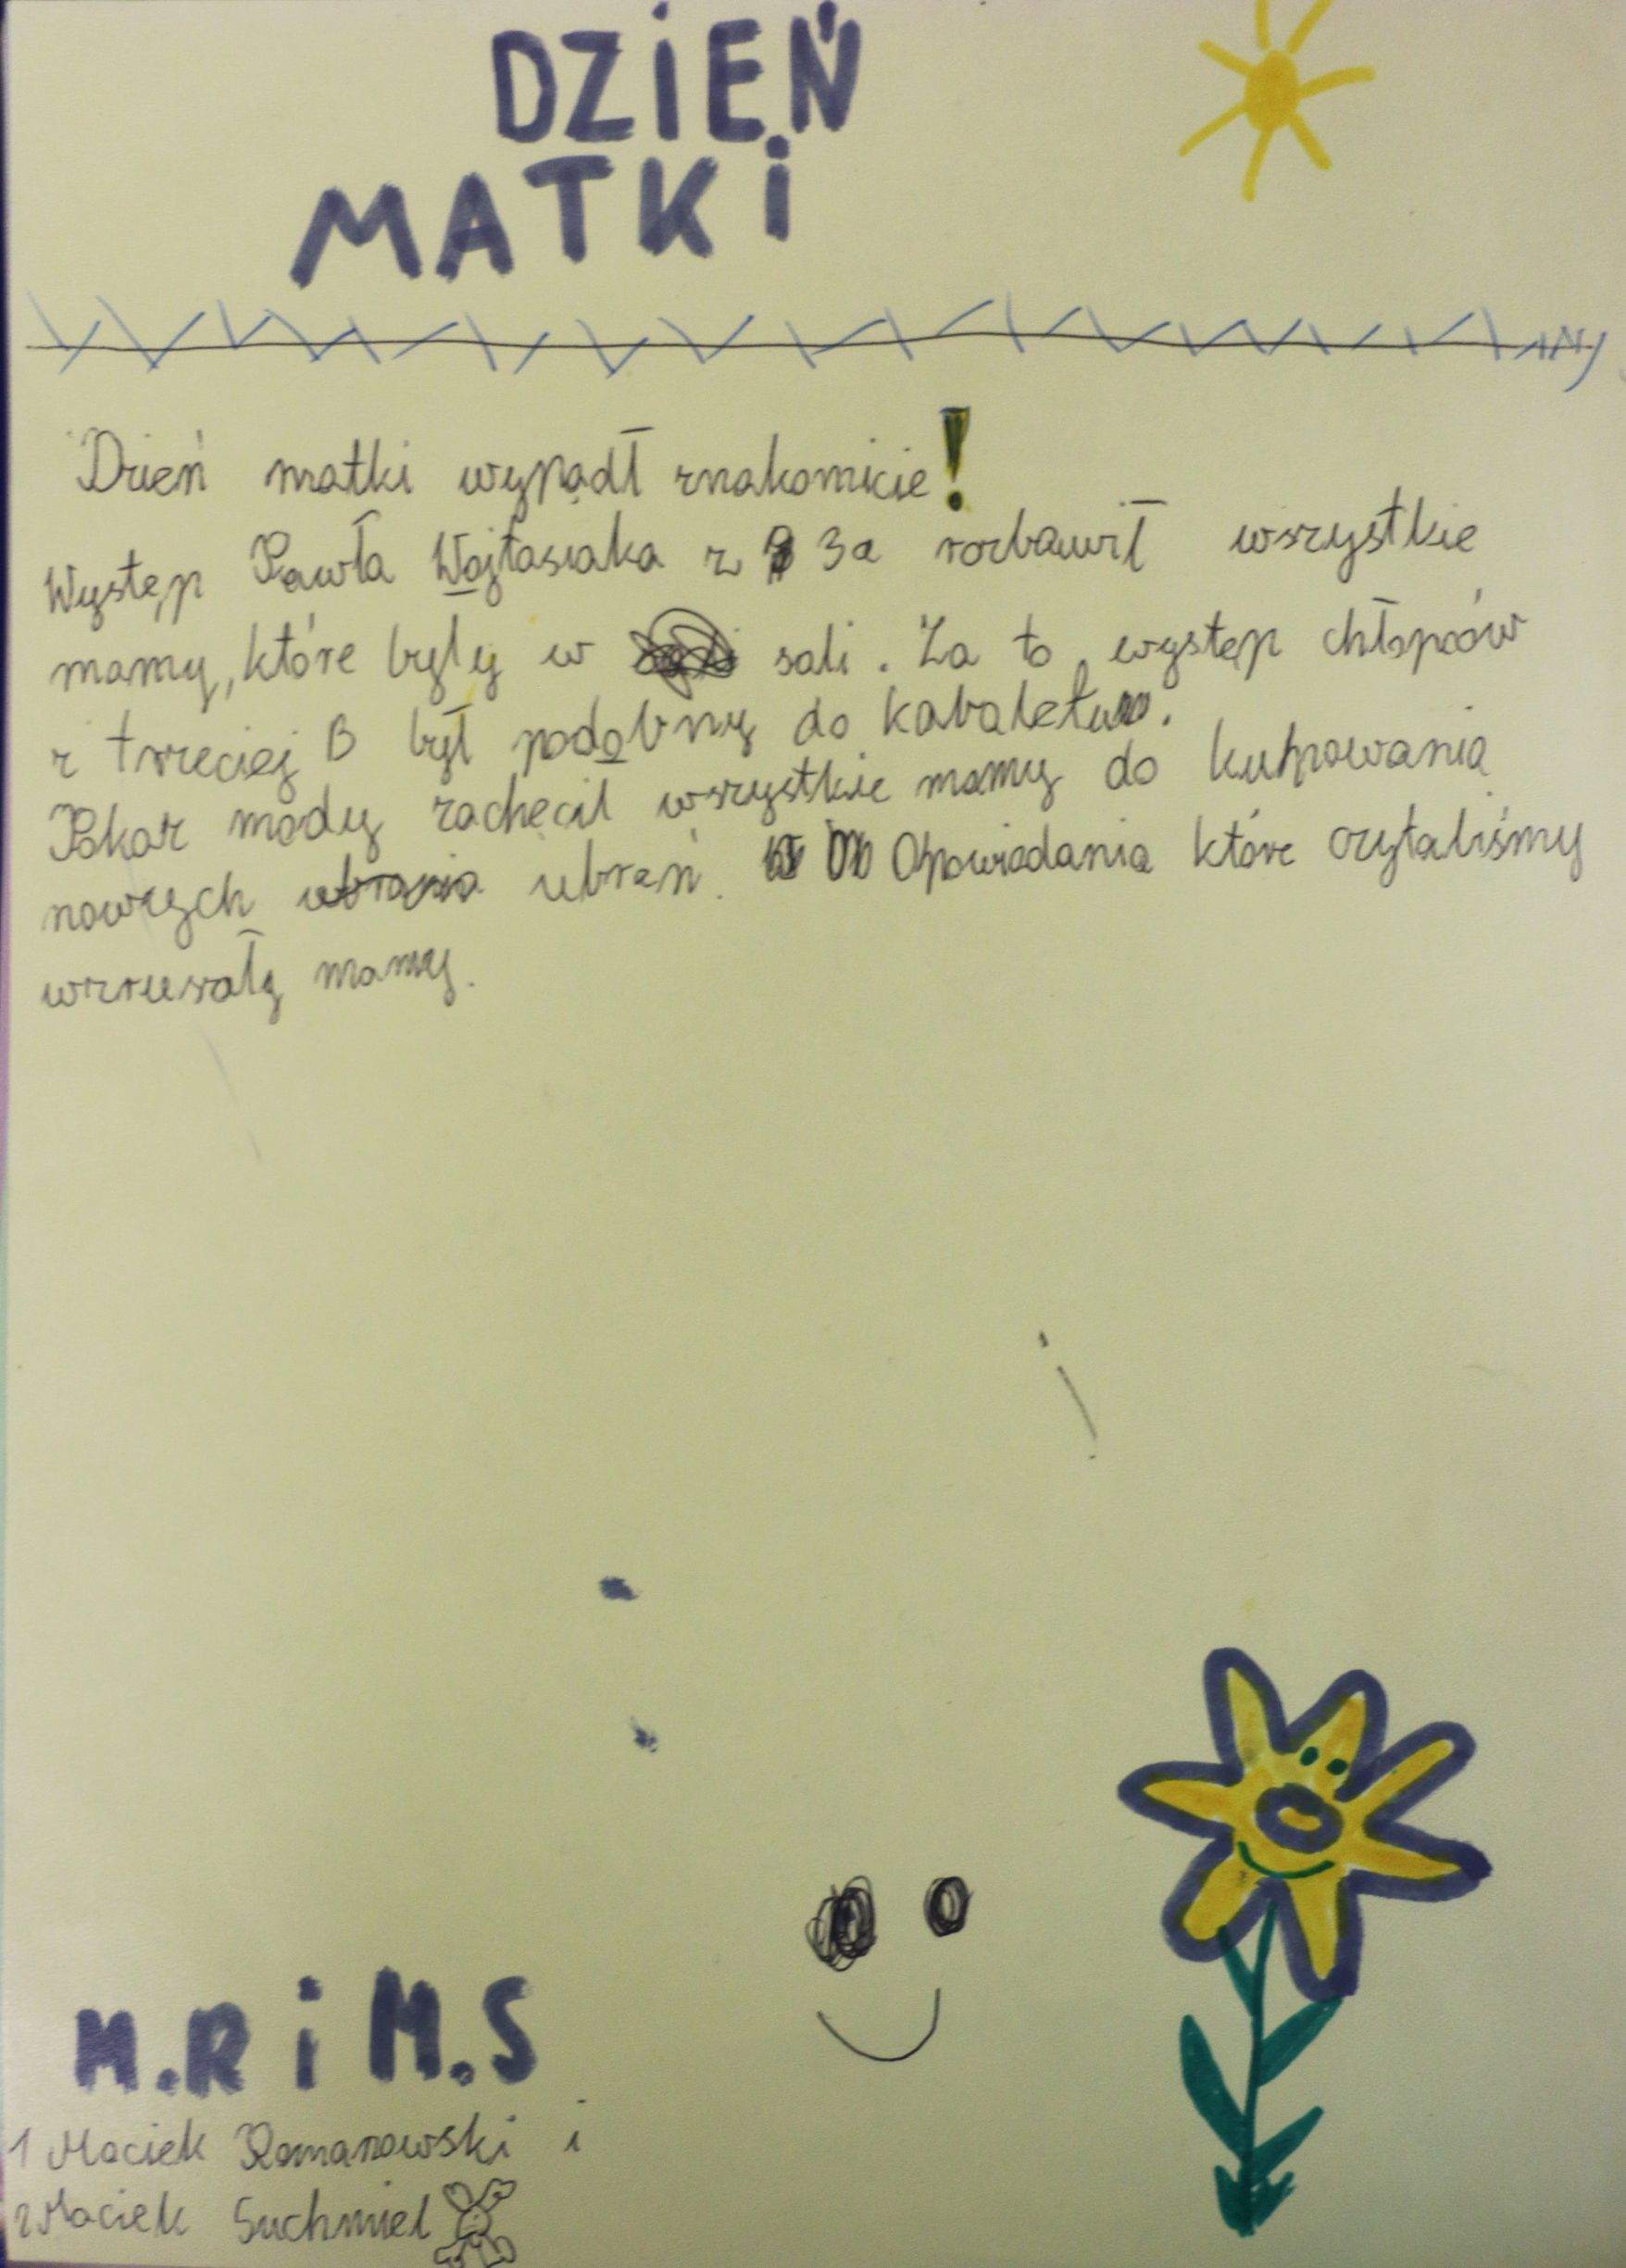 DZiEŃ
MATKi
Dzień matki wypadł znakomicie!
Występ Pawła Wojtasiaka z 3a rozbawił wszystkie
mamy, które były w sali. Za to występ chłopców
z trzeciej B był podobny do kabaletu.
Pokaz mody zachęcil wszystkie mamy do kupowania
nowych ubrań. Opowiadania które czytaliśmy
wzruszały mamy.
M.R i M.S
1 Maciek Romanowski i
2 Maciek Suchmiel